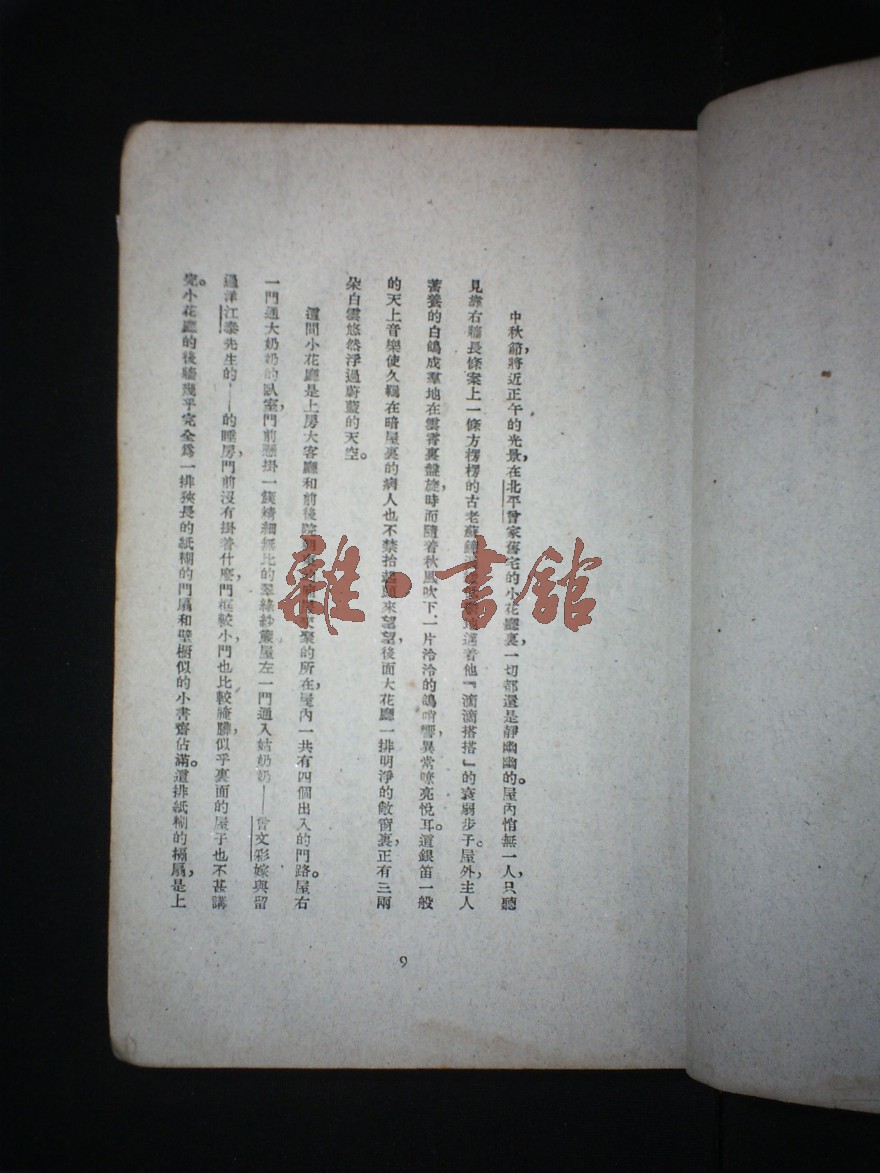 中秋節，將近正午的光景，在北平曾家舊宅的小花廳裏，一切都還是靜幽幽的。屋內悄無一人，只聽
見靠右牆長條案上一條方楞楞的古老蘇鐘遲緩地邁着他『滴滴搭搭』的衰弱步子。屋外，主人
蓄養的白鴿成羣地在雲霄裏盤旋，時而隨着秋風吹下一片泠泠的鴿哨響，異常嘹亮悅耳。這銀笛一般
的天上音樂使久羈在暗屋裏的病人也不禁抬起頭來望望，後面大花廳一排明淨的敞窗裏，正有三兩
朵白雲悠然浮過蔚藍的天空。
這間小花廳是上房大客廳和前後院交聚的所在，屋內一共有四個出入的門路。屋右
一門通大奶奶的臥室，門前懸掛一簇精細無比的翠綠紗簾，屋左一門通入姑奶奶——曾文彩，嫁與留
過洋江泰先生的——的睡房，門前沒有掛着什麼，門框較小，門也比較骯髒，似乎裏面的屋子也不甚講
究。小花廳的後牆幾乎完全爲一排狹長的紙糊的門扇和壁櫥似的小書齋佔滿。這排紙糊的槅扇，是上
9
雜·書館